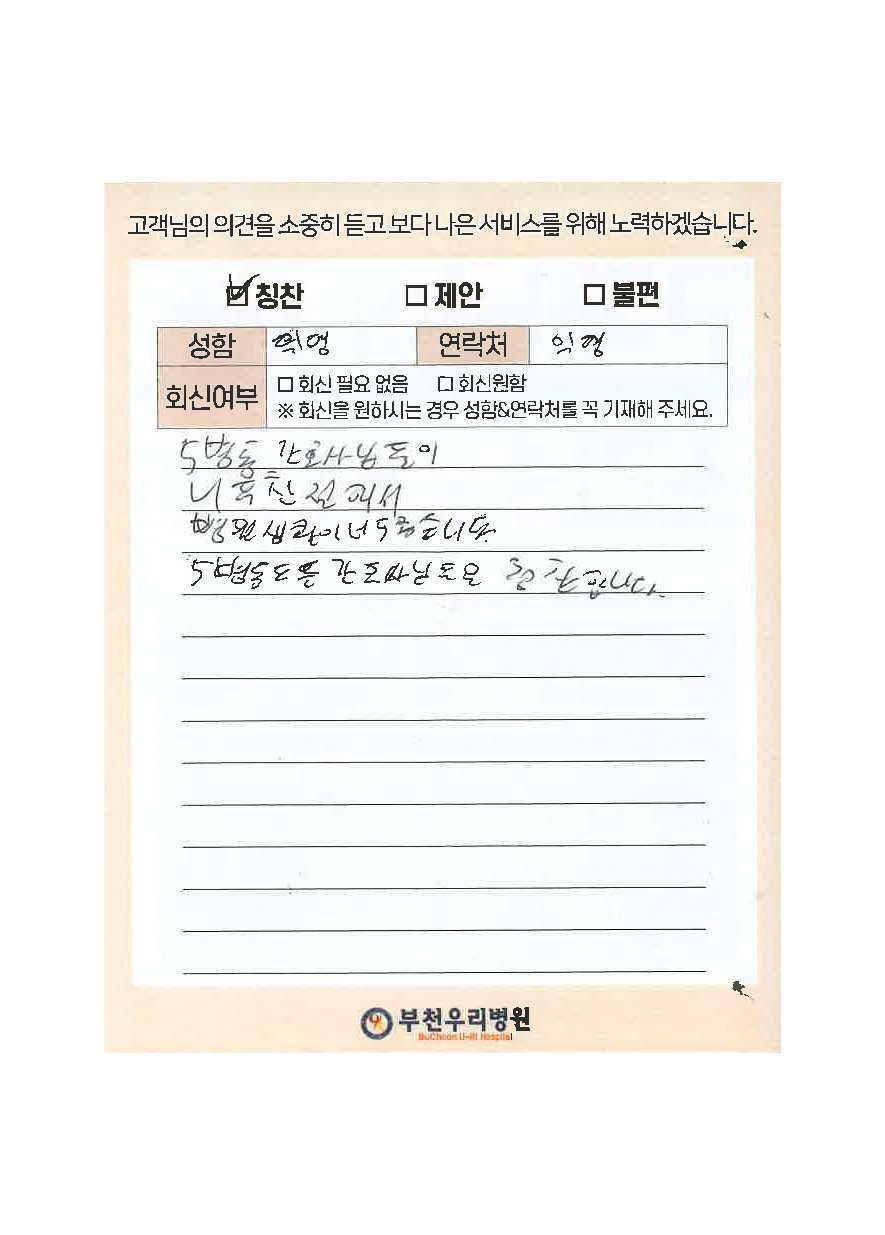 고객님의 의견을 소중히 듣고 보다 나은 서비스를 위해 노력하겠습니다.
☑ 칭찬 □ 제안 □ 불편
성함 익명 연락처 익명
회신여부 □ 회신 필요 없음 □ 회신원함
※ 회신을 원하시는 경우 성함&연락처를 꼭 기재해 주세요.
5병동 간호사님들이
너무 친절해서
병원생활이 너무 좋습니다
5병동 간호사님 칭찬합니다.
부천우리병원
BuCheon U-Ri Hospital